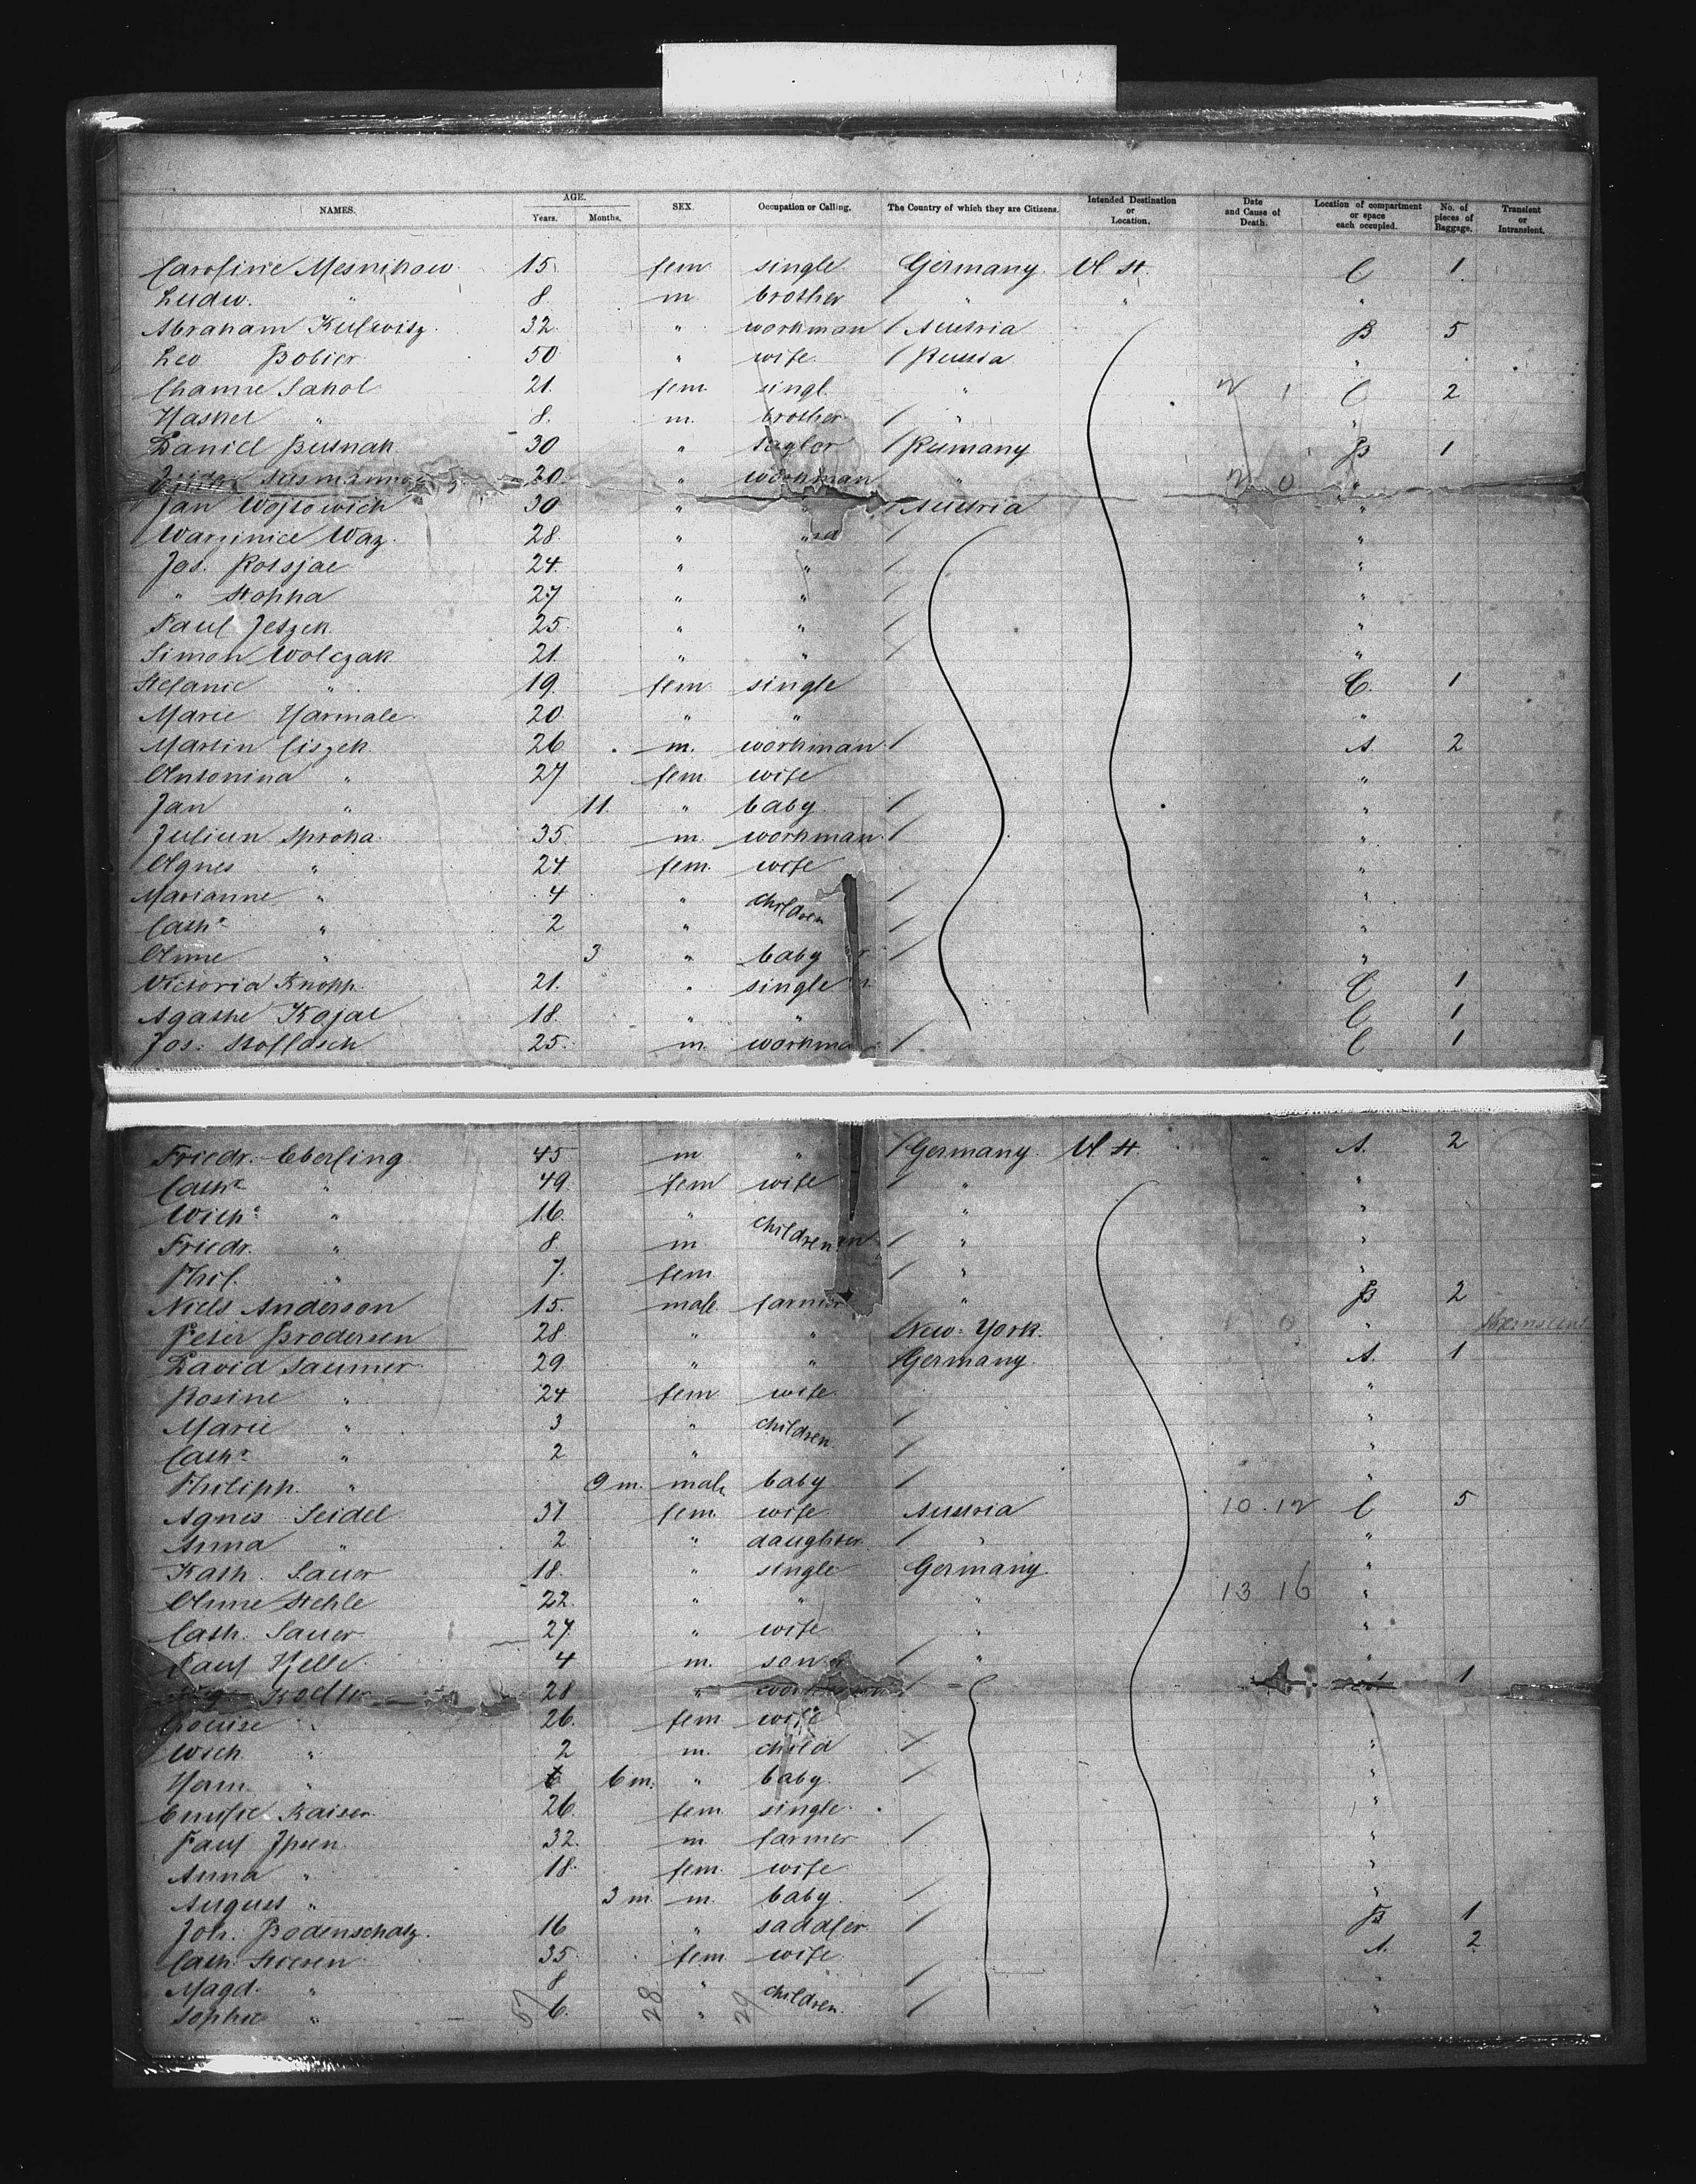 NAMES. AGE. Years. Months. SEX. Occupation or Calling. The Country of which they are Citizens. Intended Destination or Location. Date and Cause of Death. Location of compartment or space each occupied. No. of pieces of Baggage. Transient or Intransient.
Caroline Mesnikow 15 fem single Germany U St. C 1
Ludw. " 8 m brother " " "
Abraham 32 " workman Austria B 5
Leo Bobier 50 " wife Russia "
Channe Sakol 21. fem singl. " C 2
Haskel " 8. m. brother " "
Daniel Butnak 30 " taylor Rumany B 1
20 " workman " "
Jan Wojtowich 30 " " Austria "
Waz. 28. " " "
Jos. 24. " " "
" Stopka 27 " " "
Paul Jeszek 25. " " "
Simon Wolczak 21. " " "
Stefanie " 19. fem single C. 1
Marie Harmale 20. " " "
Martin Ciszek 26 m. workman A. 2
Antonina " 27 fem wife "
Jan " 11. " baby "
Juliun Sproka 35. m. workman "
Agnes " 24. fem. wife "
Marianne " 4 " children "
Cath. " 2 " "
Anne " 3 " baby "
Victoria Knopp. 21. " single C 1
Agathe Kojat 18. " " C 1
Jos. Stoffasch 25. m. workma C 1
Friedr. Eberling 45 m " Germany U St. A. 2
Cath. " 49. fem wife " "
Wilh. " 16. " children " "
Friedr. " 8. m " "
Phil. " 7. fem " "
Niels Anderson 15. male farmer " B 2
Peter Brodersen 28. " " New-York. "
David Saumer 29. " " Germany. A. 1
Rosine " 24 fem wife "
Marie " 3 " children "
Cath. " 2 " "
Philipp. " 9 m. male baby "
Agnes Seidel 31 fem. wife Austria 10.12 C 5
Anna " 2 " daughter " "
Kath. Sauer 18. " single Germany. "
Anne Stehle 22. " " " 13 16 "
Cath. Sauer 27. " wife " "
Paul Helle 4 m. son " "
Koeller 28 " workman 1
Louise " 26. fem wife "
Wilh. " 2 m. child "
Herm. " 6 m. " baby. "
Emilie Kaiser 26. fem. single. "
Paul Ipsen. 32. m farmer "
Anna " 18. fem. wife "
August " 3 m m. baby. "
Joh. Bodenschatz. 16 " saddler B 1
Cath. 35. fem. wife A. 2
Magd. " 8 " children. "
Sophie " 6. " "
57 28 29